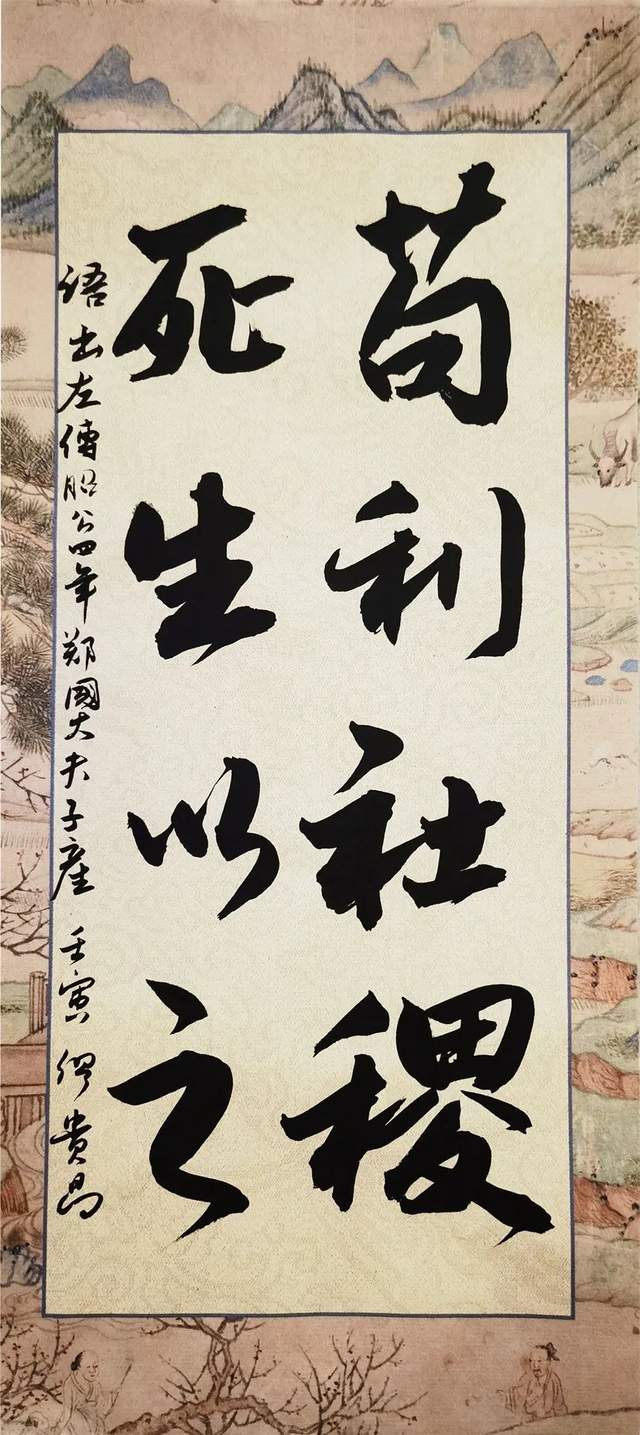 苟利社稷
死生以之
语出左傳昭公四年郑國大夫子產 壬寅 何貴昌